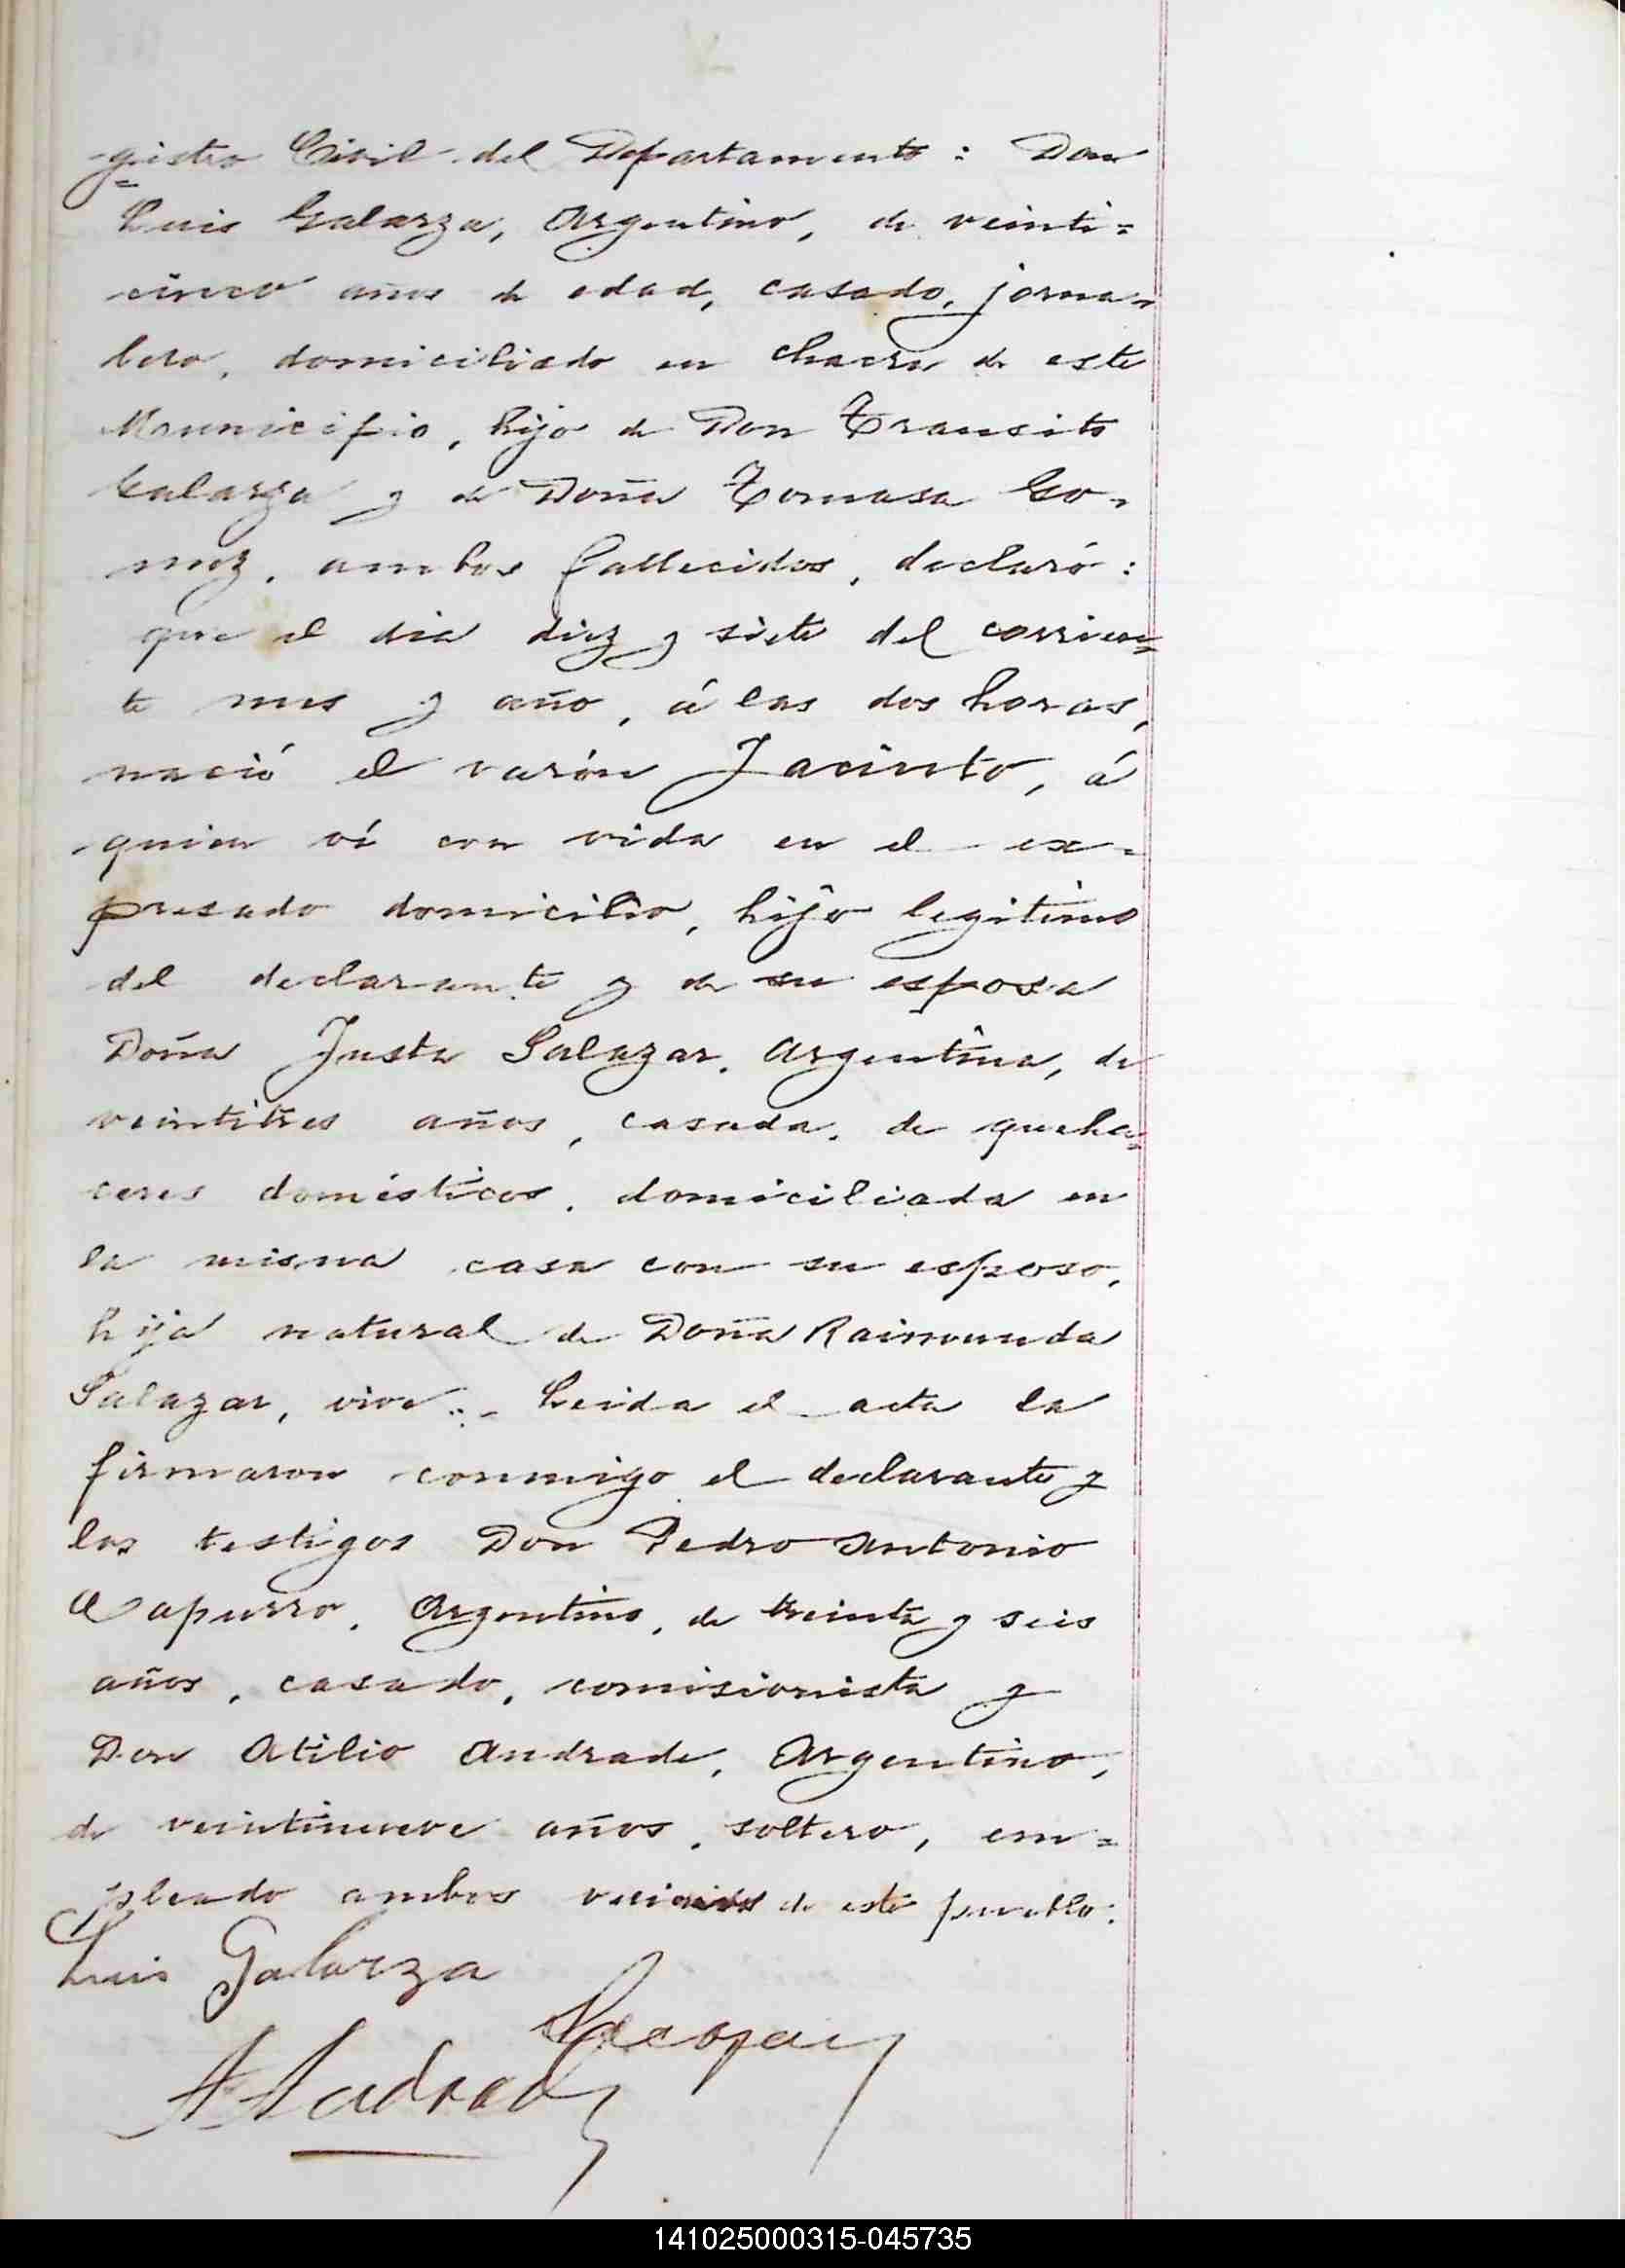 gistro Civil del Departamento: Don
Luis Galarza, Argentino, de veinti=
cinco años de edad, casado, jorna=
lero, domiciliado en chacra de este
Municipio, hijo de Don Transito
Galarza y de Doña Tomasa Go-
mez, ambos fallecidos, declaró:
que el dia diez y siete del corrien=
te mes y año, á las dos horas,
nació el varón Jacinto, á
quien ví con vida en el ex=
presado domicilio, hijo legitimo
del declarante y de su esposa
Doña Justa Salazar, Argentina, de
veintitres años, casada, de queha=
ceres domésticos, domiciliada en
la misma casa con su esposo,
hija natural de Doña Raimunda
Salazar, vive.- Leida el acta la
firmaron conmigo el declarante y
los testigos Don Pedro Antonio
Capurro, Argentino, de treinta y seis
años, casado, comisionista y
Don Atilio Andrade, Argentino,
de veintinueve años, soltero, em=
pleado ambos vecinos de este pueblo.
Luis Galarza
A Andrade
141025000315-045735